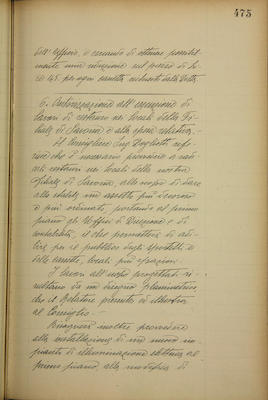 475
dell'ufficio, e cercando di ottenere possibil-
mente una riduzione sul prezzo di Li-
re 45 per ogni casetta richiesto dalla Ditta.
6. Autorizzazione all'esecuzione di
lavori di restauro nei locali della Fi-
liale di Savona e alla spesa relativa.
Il Consigliere Ing. rife-
risce che è necessario provvedere a
restauri nei locali della nostra
Filiale di Savona, allo scopo di dare
allo stabile un assetto più decoroso
e più ordinato, portando al primo
piano gli Uffici di Direzione e di
contabilità, il che permetterà di adi-
bire per il pubblico degli sportelli e
delle cassette, locali più spaziosi.
I lavori all'uopo progettati ri-
sultano da un disegno planimetrico
che il Relatore presenta ed illustra
al Consiglio.
Bisognerà inoltre provvedere
alla installazione di un nuovo im-
pianto di illuminazione elettrica al
primo piano, alla modifica di